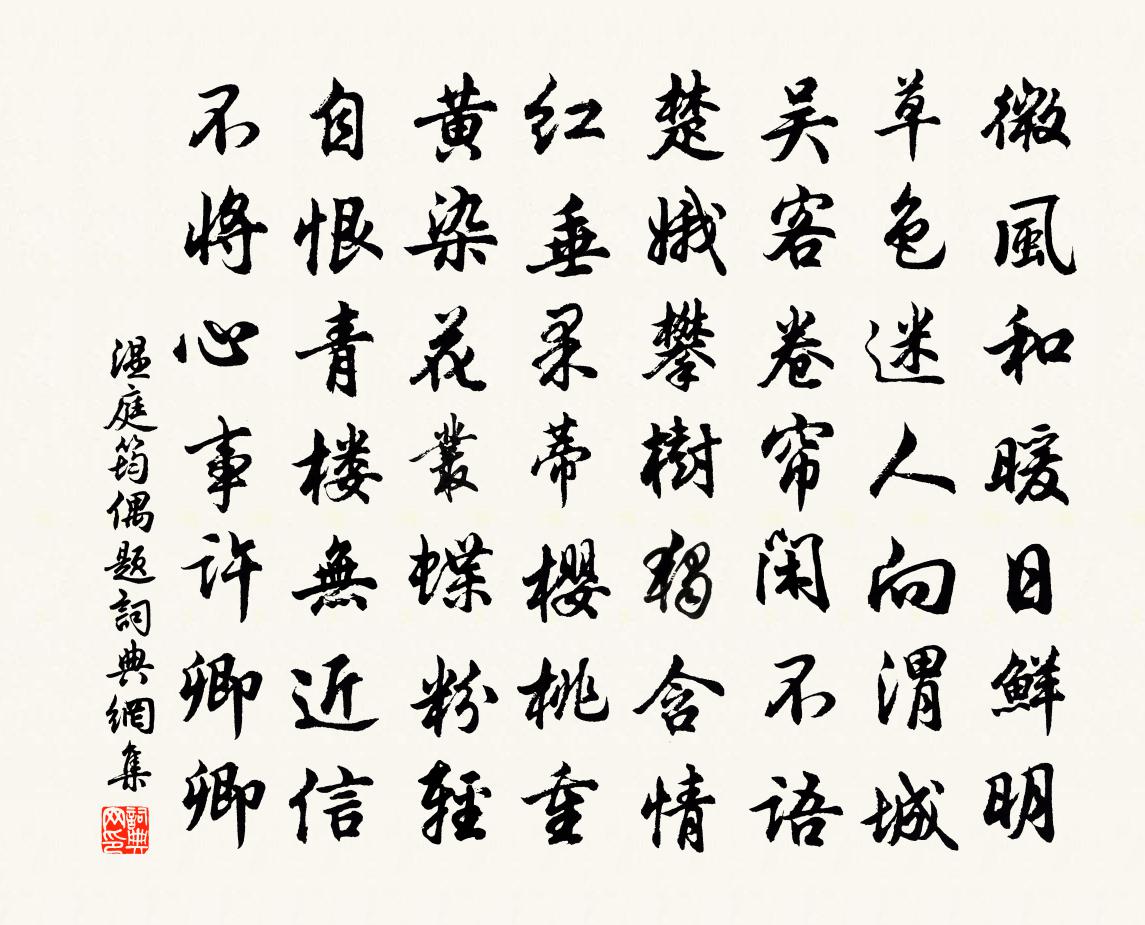 微風和暖日鮮明
草色迷人向渭城
吴客卷帘闲不语
楚娥攀樹獨含情
红垂果蒂櫻桃重
黄染花叢蝶粉輕
自恨青楼無近信
不将心事许卿卿
温庭筠偶题詞典網集
詞典
网印